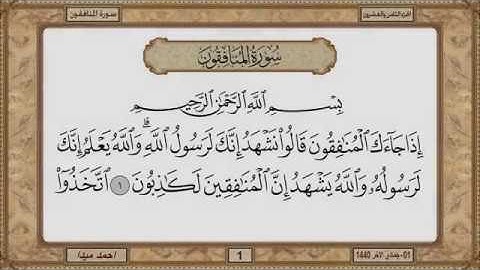 سورة المنافقون
الجزء الثامن والعشرون
سُورَةُ المُنَافِقُونَ
بِسْمِ اللَّهِ الرَّحْمَٰنِ الرَّحِيمِ
إِذَا جَاءَكَ الْمُنَافِقُونَ قَالُوا نَشْهَدُ إِنَّكَ لَرَسُولُ اللَّهِ ۗ وَاللَّهُ يَعْلَمُ إِنَّكَ
لَرَسُولُهُ وَاللَّهُ يَشْهَدُ إِنَّ الْمُنَافِقِينَ لَكَاذِبُونَ ١ اتَّخَذُوا
1
1440